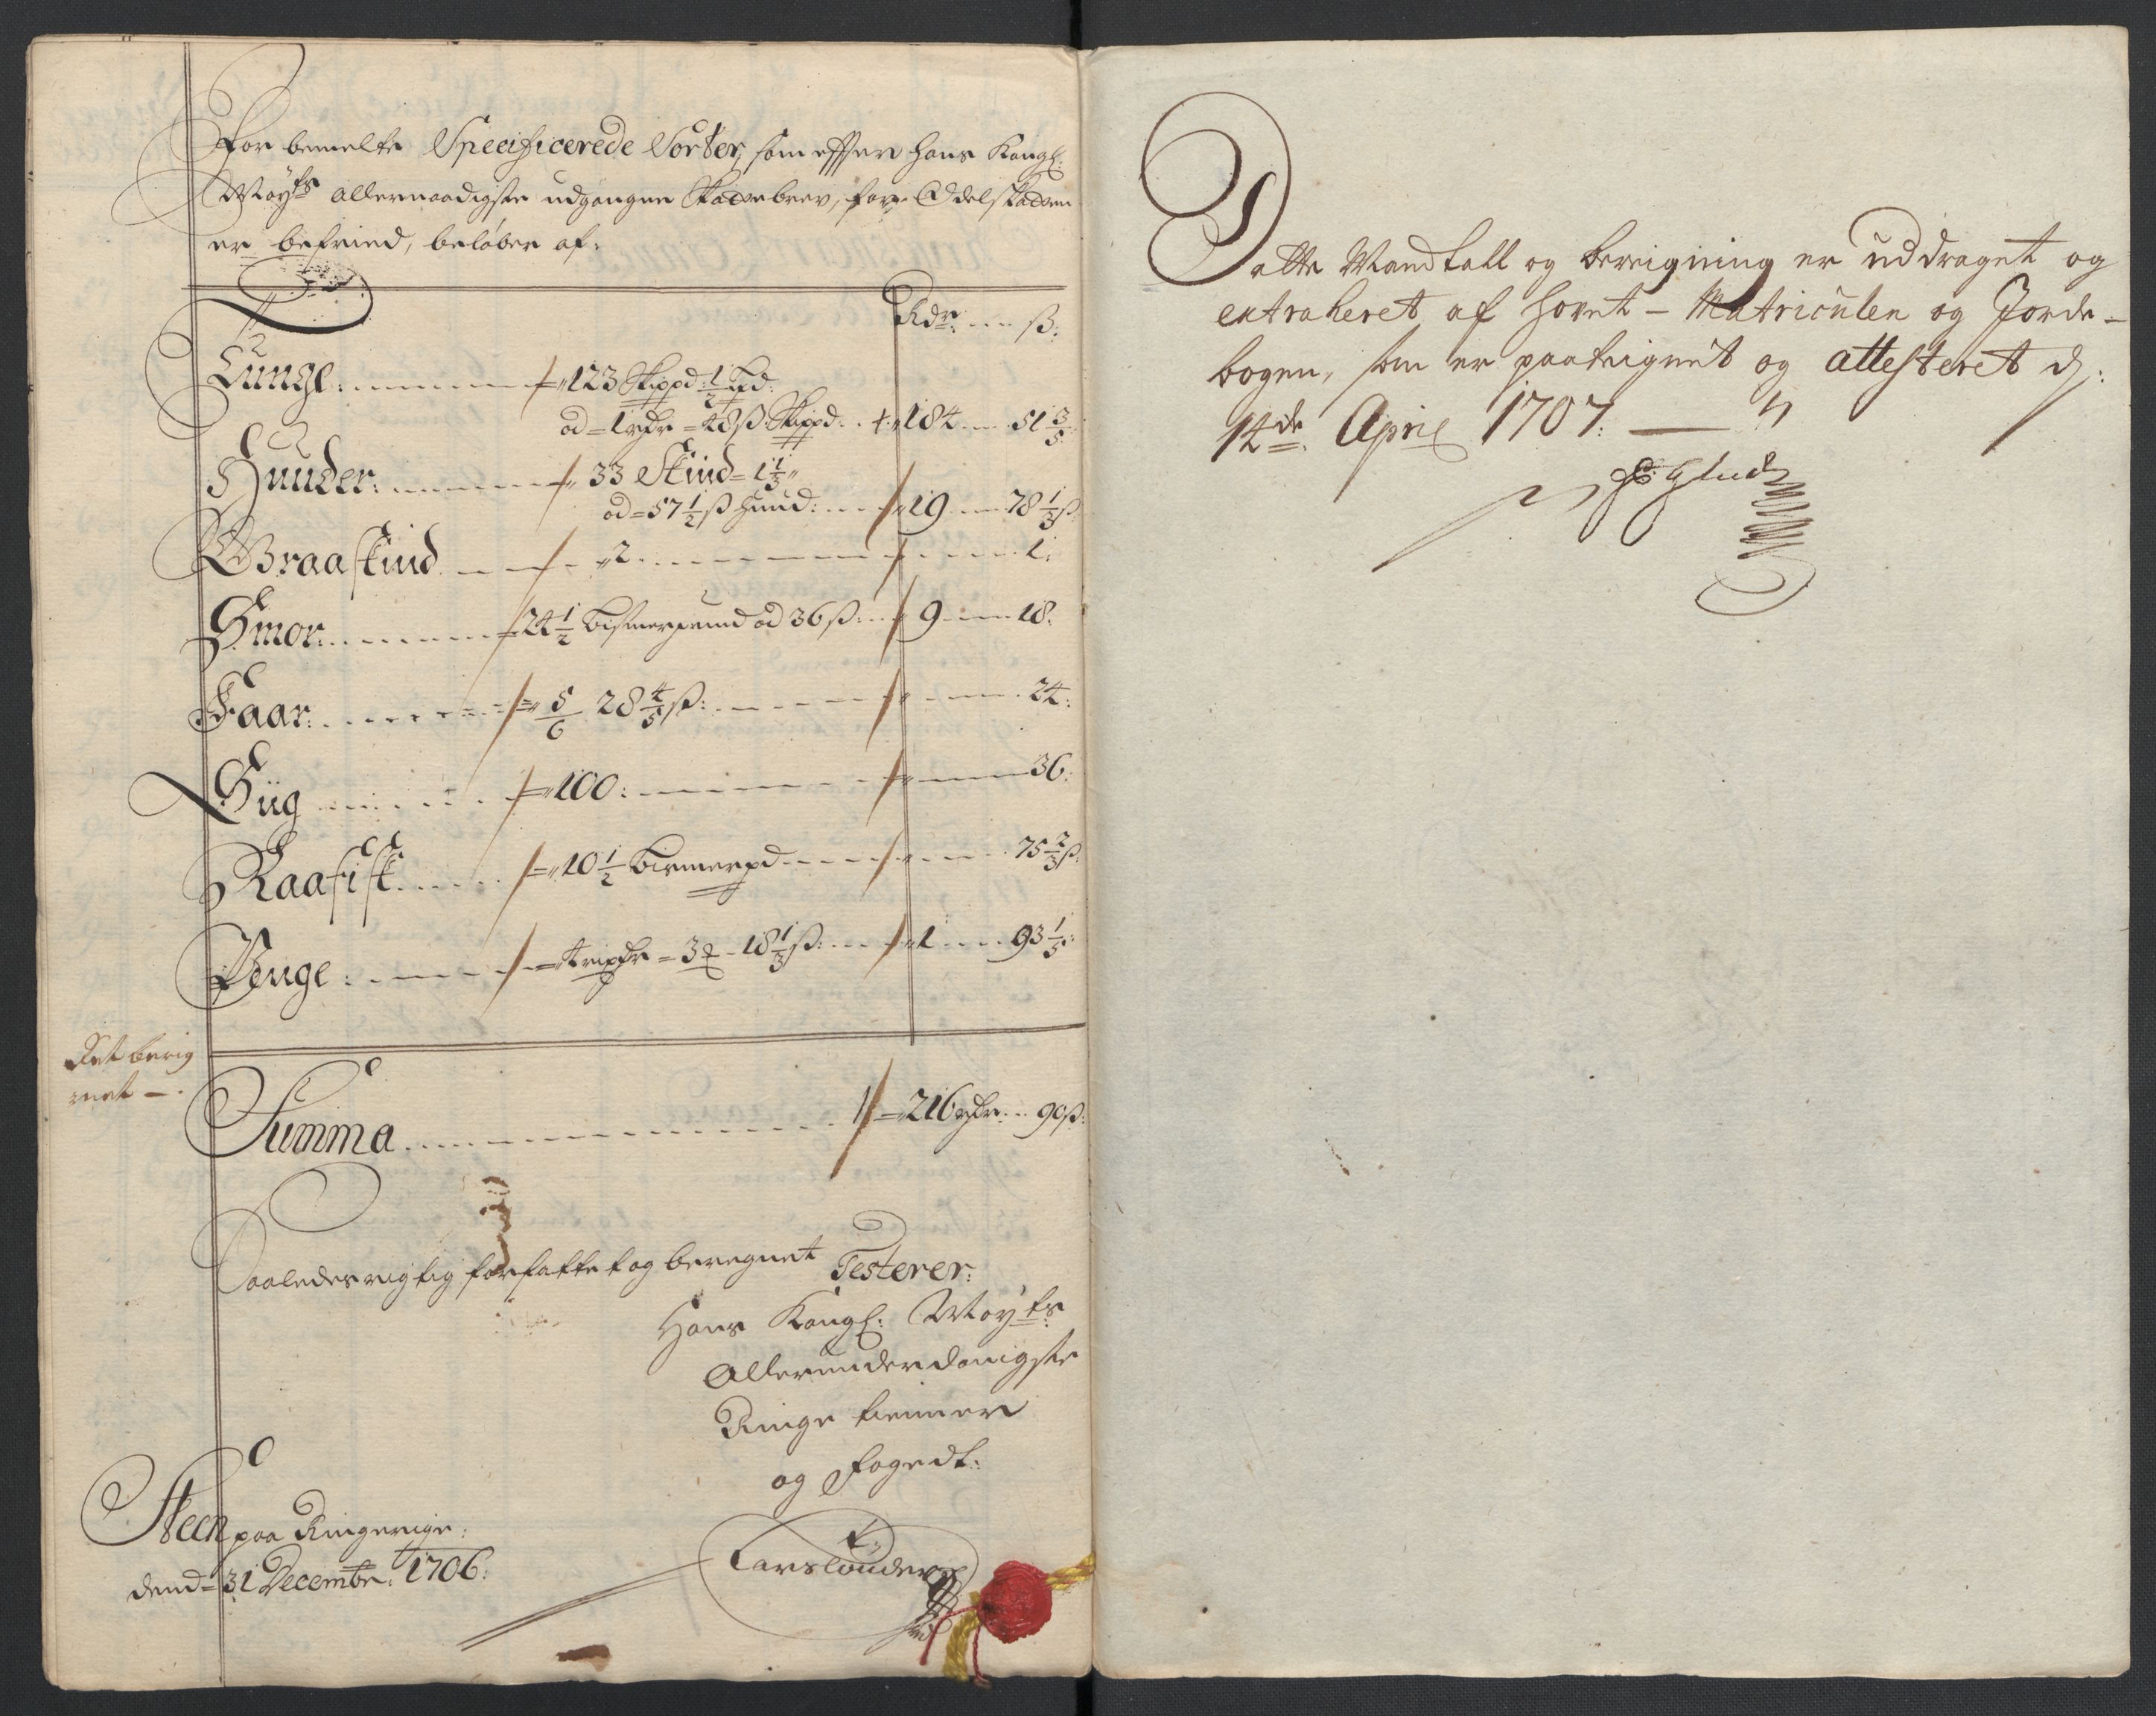 For bemelte Specificerede Sorter, som effter Hans Kongl:
Mayts allernaadigste udgangne Skattebrev, for Odelskatten
er befried, beløber af:
Rdr: ß:
Tunge: 123 Skippd: 1/2 Lpd:
ad 1 rdr 48 ß Skippd. 184 51 3/5
Huuder: 33 Skind 1 1/3
ad 57 1/2 ß Huud: 19 78 1/3 ß
Graaskind 2 1:
Smør: 24 1/2 Bismerpund ad 36 ß: 9 18:
Faar: 5/6 28 4/5 ß: 24:
Siig 100: 36:
Raafisk 10 1/2 Bismerpd 75 2/3 ß:
Penge: 4 ripdr 3 18 1/3 ß: 1 93 1/5:
Ret berig
net -.
Summa 216 rdr 90 ß:
Saaledes rigtig forfattet og beregnet Testerer:
Hans Kongl: Mayts
Allerunderdanigste
Ringe tienner
og Fogedt:
Steen paa Ringerige:
dend 31 Decembr: 1706:
Dette Mandtall og bereigning er uddraget og
extraheret af Hovet-Matriculen og Jorde-
bogen, som er paateignet og attesteret d:
14de April 1707: